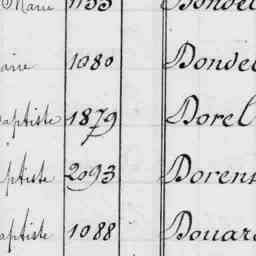 Marie 1133 Bondel
aire 1080 Dondel
aptiste 1879 Dorel
ptiste 2093 Dorens
aptiste 1088 Douar